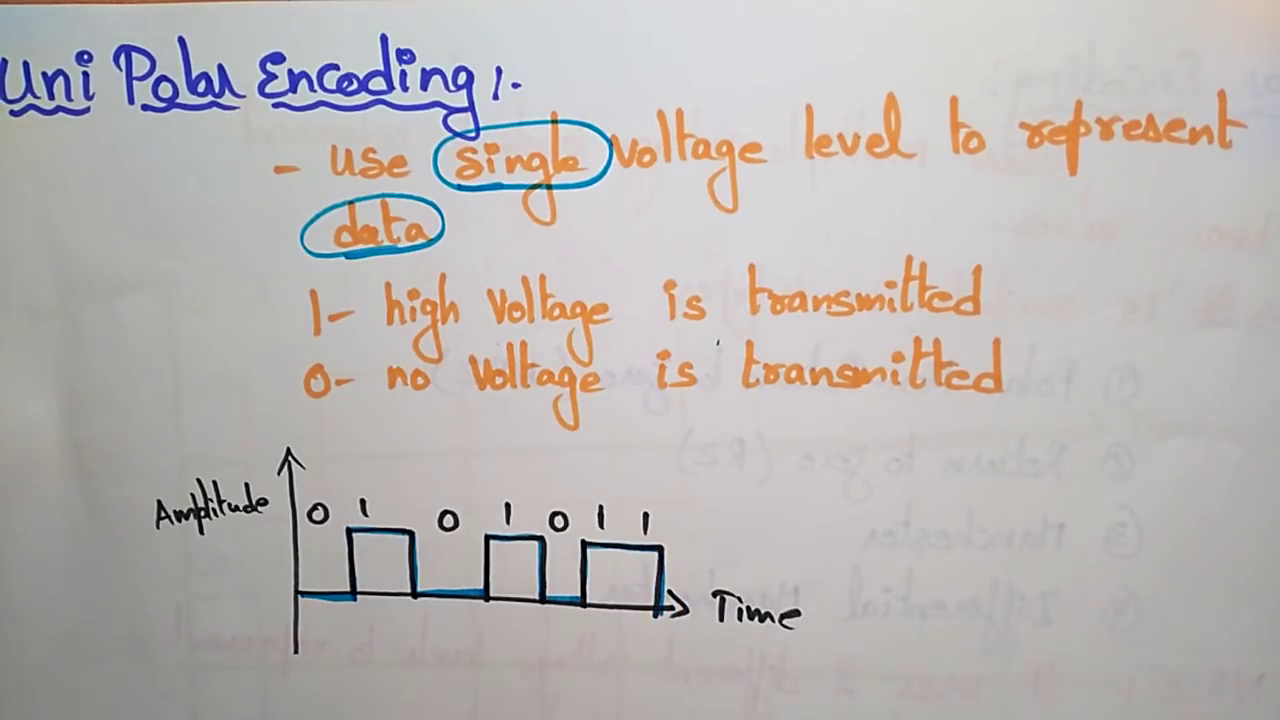 Uni Polar Encoding:-
- use single voltage level to represent
data
1- high voltage is transmitted
0- no voltage is transmitted
Amplitude
0 1 0 1 0 1 1
Time
② Return to zero (RZ)
③ Manchester